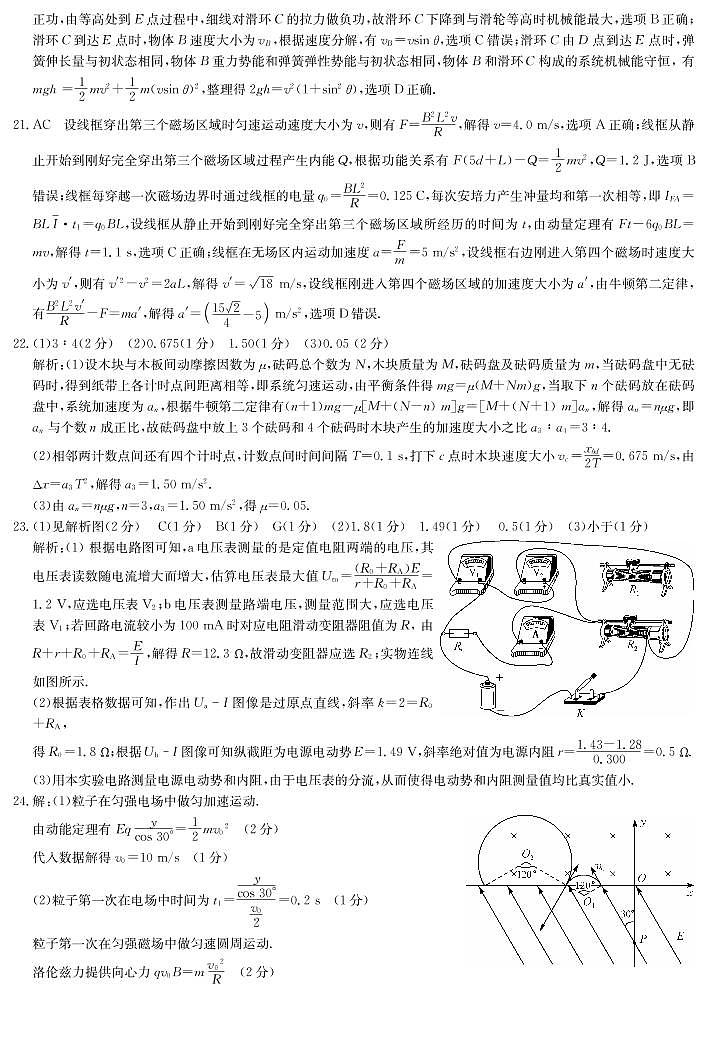 正功,由等高处到 E 点过程中,细线对滑环 C 的拉力做负功,故滑环 C 下降到与滑轮等高时机械能最大,选项 B 正确;
滑环 C 到达 E 点时,物体 B 速度大小为 v_B,根据速度分解,有 v_B=vsin θ,选项 C 错误;滑环 C 由 D 点到达 E 点时,弹
簧伸长量与初状态相同,物体 B 重力势能和弹簧弹性势能与初状态相同,物体 B 和滑环 C 构成的系统机械能守恒, 有
mgh =1/2 mv²+1/2 m(vsin θ)²,整理得 2gh=v²(1+sin² θ),选项 D 正确.
21. AC 设线框穿出第三个磁场区域时匀速运动速度大小为 v,则有 F=B²L²v/R,解得 v=4.0 m/s,选项 A 正确;线框从静
止开始到刚好完全穿出第三个磁场区域过程产生内能 Q,根据功能关系有 F(5d+L)-Q=1/2 mv²,Q=1.2 J,选项 B
错误;线框每穿越一次磁场边界时通过线框的电量 q₀=BL²/R=0.125 C,每次安培力产生冲量均和第一次相等,即 I_FA=
BL I̅·t₁=q₀BL,设线框从静止开始到刚好完全穿出第三个磁场区域所经历的时间为 t,由动量定理有 Ft-6q₀BL=
mv,解得 t=1.1 s,选项 C 正确;线框在无场区内运动加速度 a=F/m=5 m/s²,设线框右边刚进入第四个磁场时速度大
小为 v′,则有 v′²-v²=2aL,解得 v′=√18 m/s,设线框刚进入第四个磁场区域的加速度大小为 a′,由牛顿第二定律,
有B²L²v′/R-F=ma′,解得 a′=(15√2/4-5) m/s²,选项 D 错误.
22. (1)3∶4(2 分) (2)0.675(1 分) 1.50(1 分) (3)0.05 (2 分)
解析:(1)设木块与木板间动摩擦因数为 μ,砝码总个数为 N,木块质量为 M,砝码盘及砝码质量为 m,当砝码盘中无砝
码时,得到纸带上各计时点间距离相等,即系统匀速运动,由平衡条件得 mg=μ(M+Nm)g,当取下 n 个砝码放在砝码
盘中,系统加速度为 aₙ,根据牛顿第二定律有(n+1)mg-μ[M+(N-n) m]g=[M+(N+1) m]aₙ,解得 aₙ=nμg,即
aₙ 与个数 n 成正比,故砝码盘中放上 3 个砝码和 4 个砝码时木块产生的加速度大小之比 a₃∶a₄=3∶4.
(2)相邻两计数点间还有四个计时点,计数点间时间间隔 T=0.1 s,打下 c 点时木块速度大小 v_c=x_bd/2T=0.675 m/s,由
Δx=a₃T²,解得 a₃=1.50 m/s².
(3)由 aₙ=nμg,n=3,a₃=1.50 m/s²,得 μ=0.05.
23. (1)见解析图(2 分) C(1 分) B(1 分) G(1 分) (2)1.8(1 分) 1.49(1 分) 0.5(1 分) (3)小于(1 分)
解析:(1) 根据电路图可知,a 电压表测量的是定值电阻两端的电压,其
电压表读数随电流增大而增大,估算电压表最大值 U_m=(R₀+R_A)E/(r+R₀+R_A)=
1.2 V,应选电压表 V₂;b 电压表测量路端电压,测量范围大,应选电压
表 V₁;若回路电流较小为 100 mA 时对应电阻滑动变阻器阻值为 R, 由
R+r+R₀+R_A=E/I,解得 R=12.3 Ω,故滑动变阻器应选 R₂;实物连线
如图所示.
V₁
V₂
R₁
A
R₂
+
K
(2)根据表格数据可知,作出 U_a-I 图像是过原点直线,斜率 k=2=R₀
+R_A,
得 R₀=1.8 Ω;根据 U_b-I 图像可知纵截距为电源电动势 E=1.49 V,斜率绝对值为电源内阻 r=(1.43-1.28)/0.300=0.5 Ω.
(3)用本实验电路测量电源电动势和内阻,由于电压表的分流,从而使得电动势和内阻测量值均比真实值小.
24. 解:(1)粒子在匀强电场中做匀加速运动.
由动能定理有 Eq y/cos 30°=1/2 mv₀² (2 分)
代入数据解得 v₀=10 m/s (1 分)
(2)粒子第一次在电场中时间为 t₁=(y/cos 30°)/(v₀/2)=0.2 s (1 分)
粒子第一次在匀强磁场中做匀速圆周运动.
洛伦兹力提供向心力 qv₀B=m v₀²/R (2 分)
y
O₂
120°
v₀
120°
O₁
O
x
30°
P
E